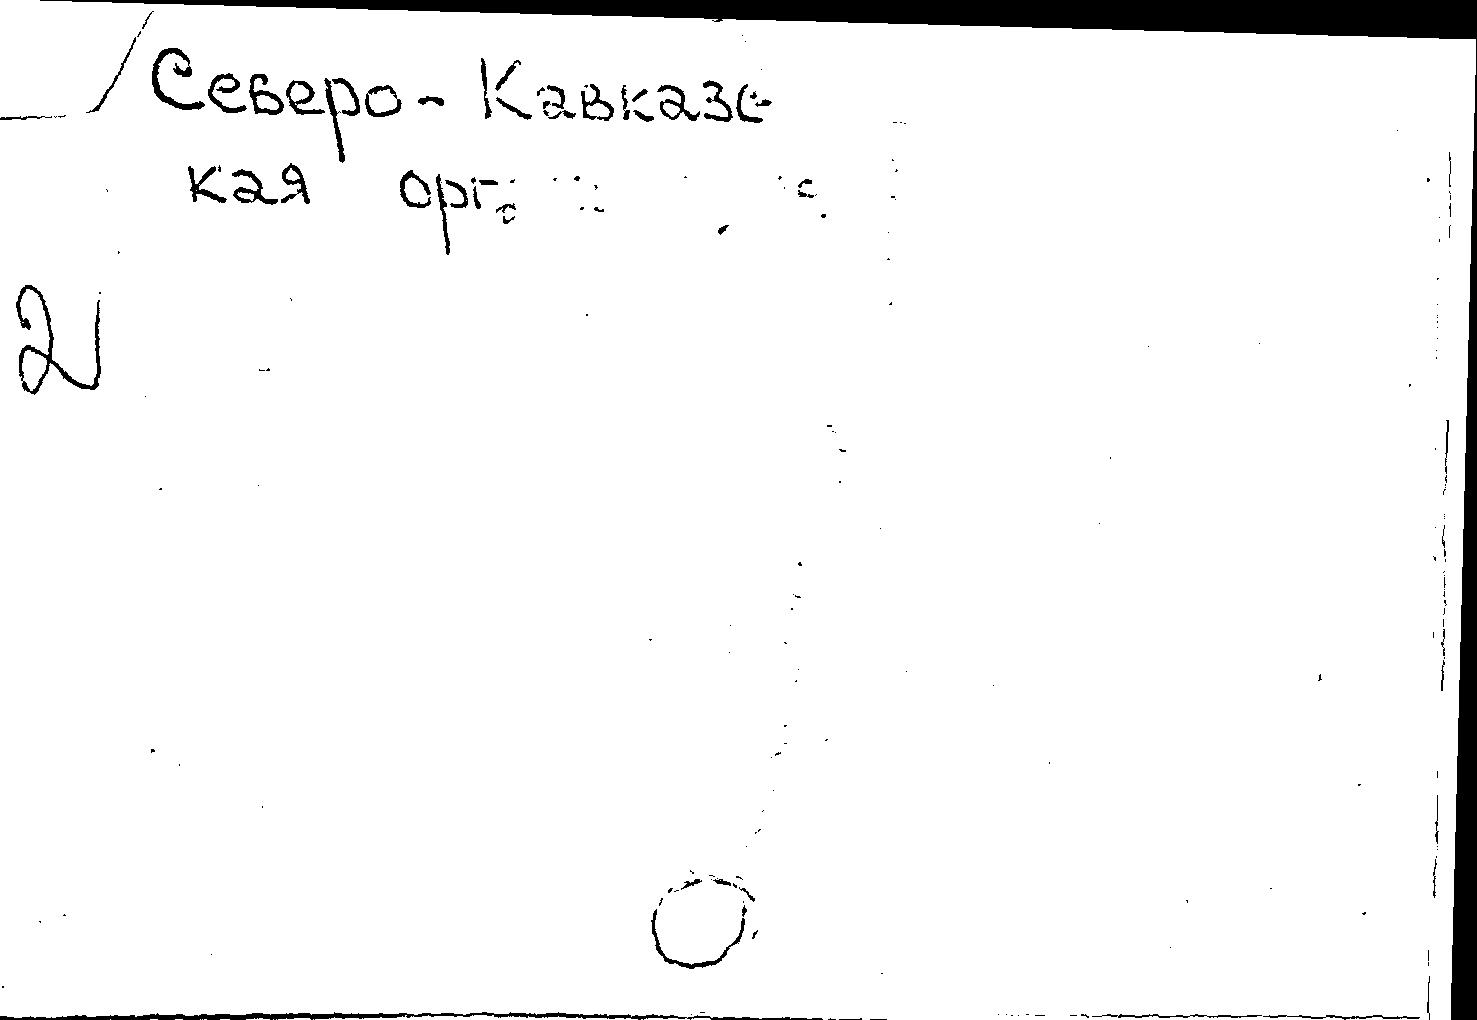 Северо-Кавказс-
кая
2